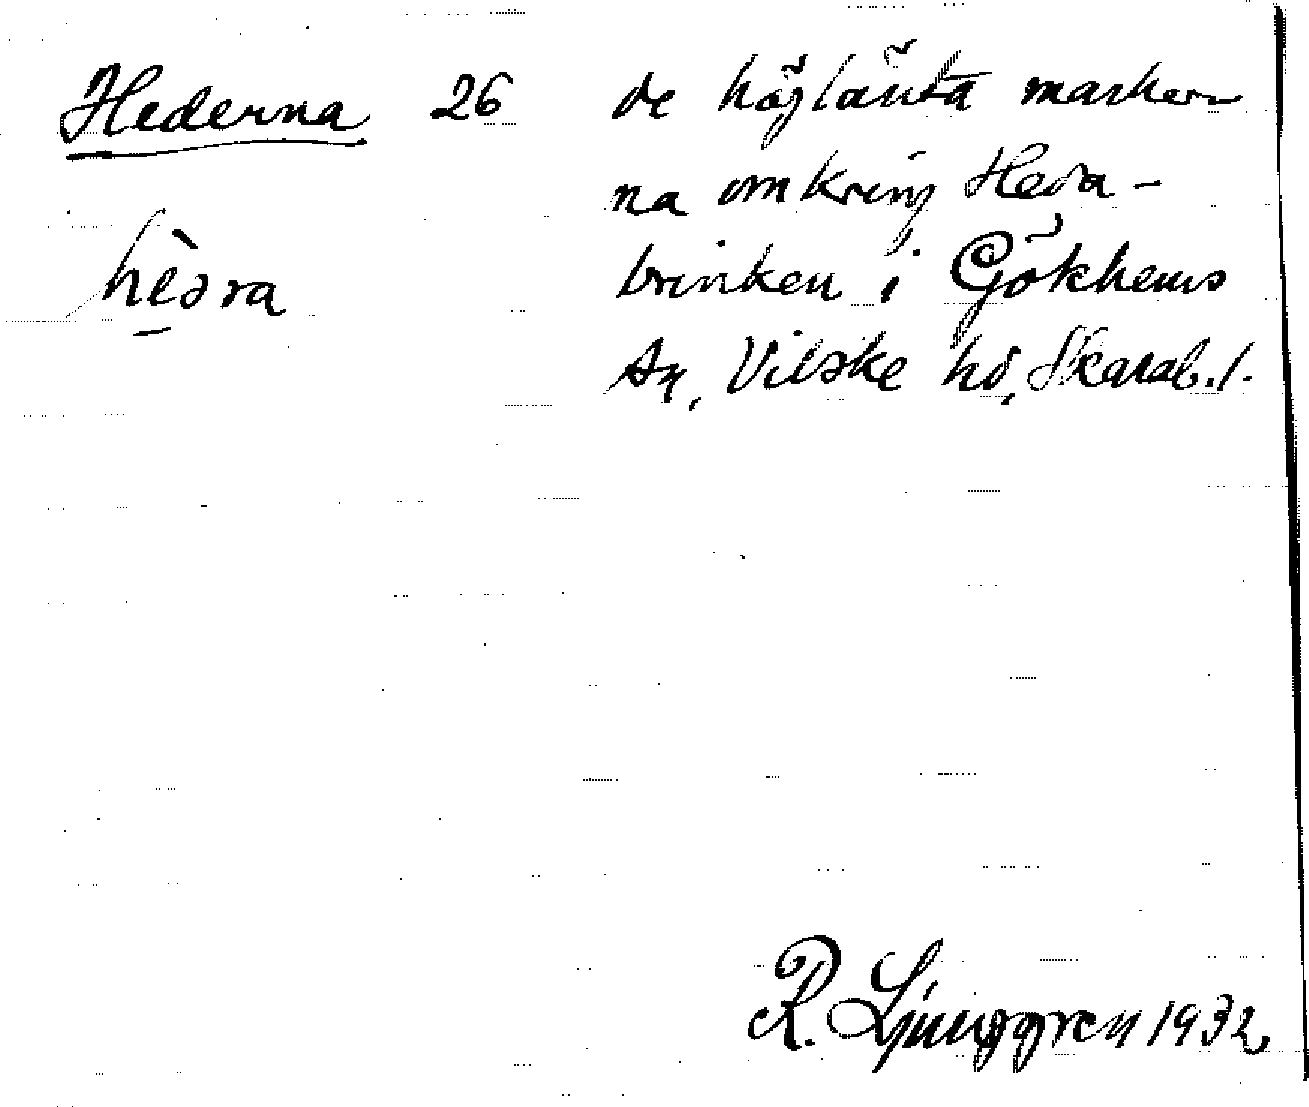 Hederna 26 de höglänta marker-
na omkring Heda-
brinken i Gökhems
sn, Vilske hd, Skarab. l.
hèdra
R. Ljunggren 1932